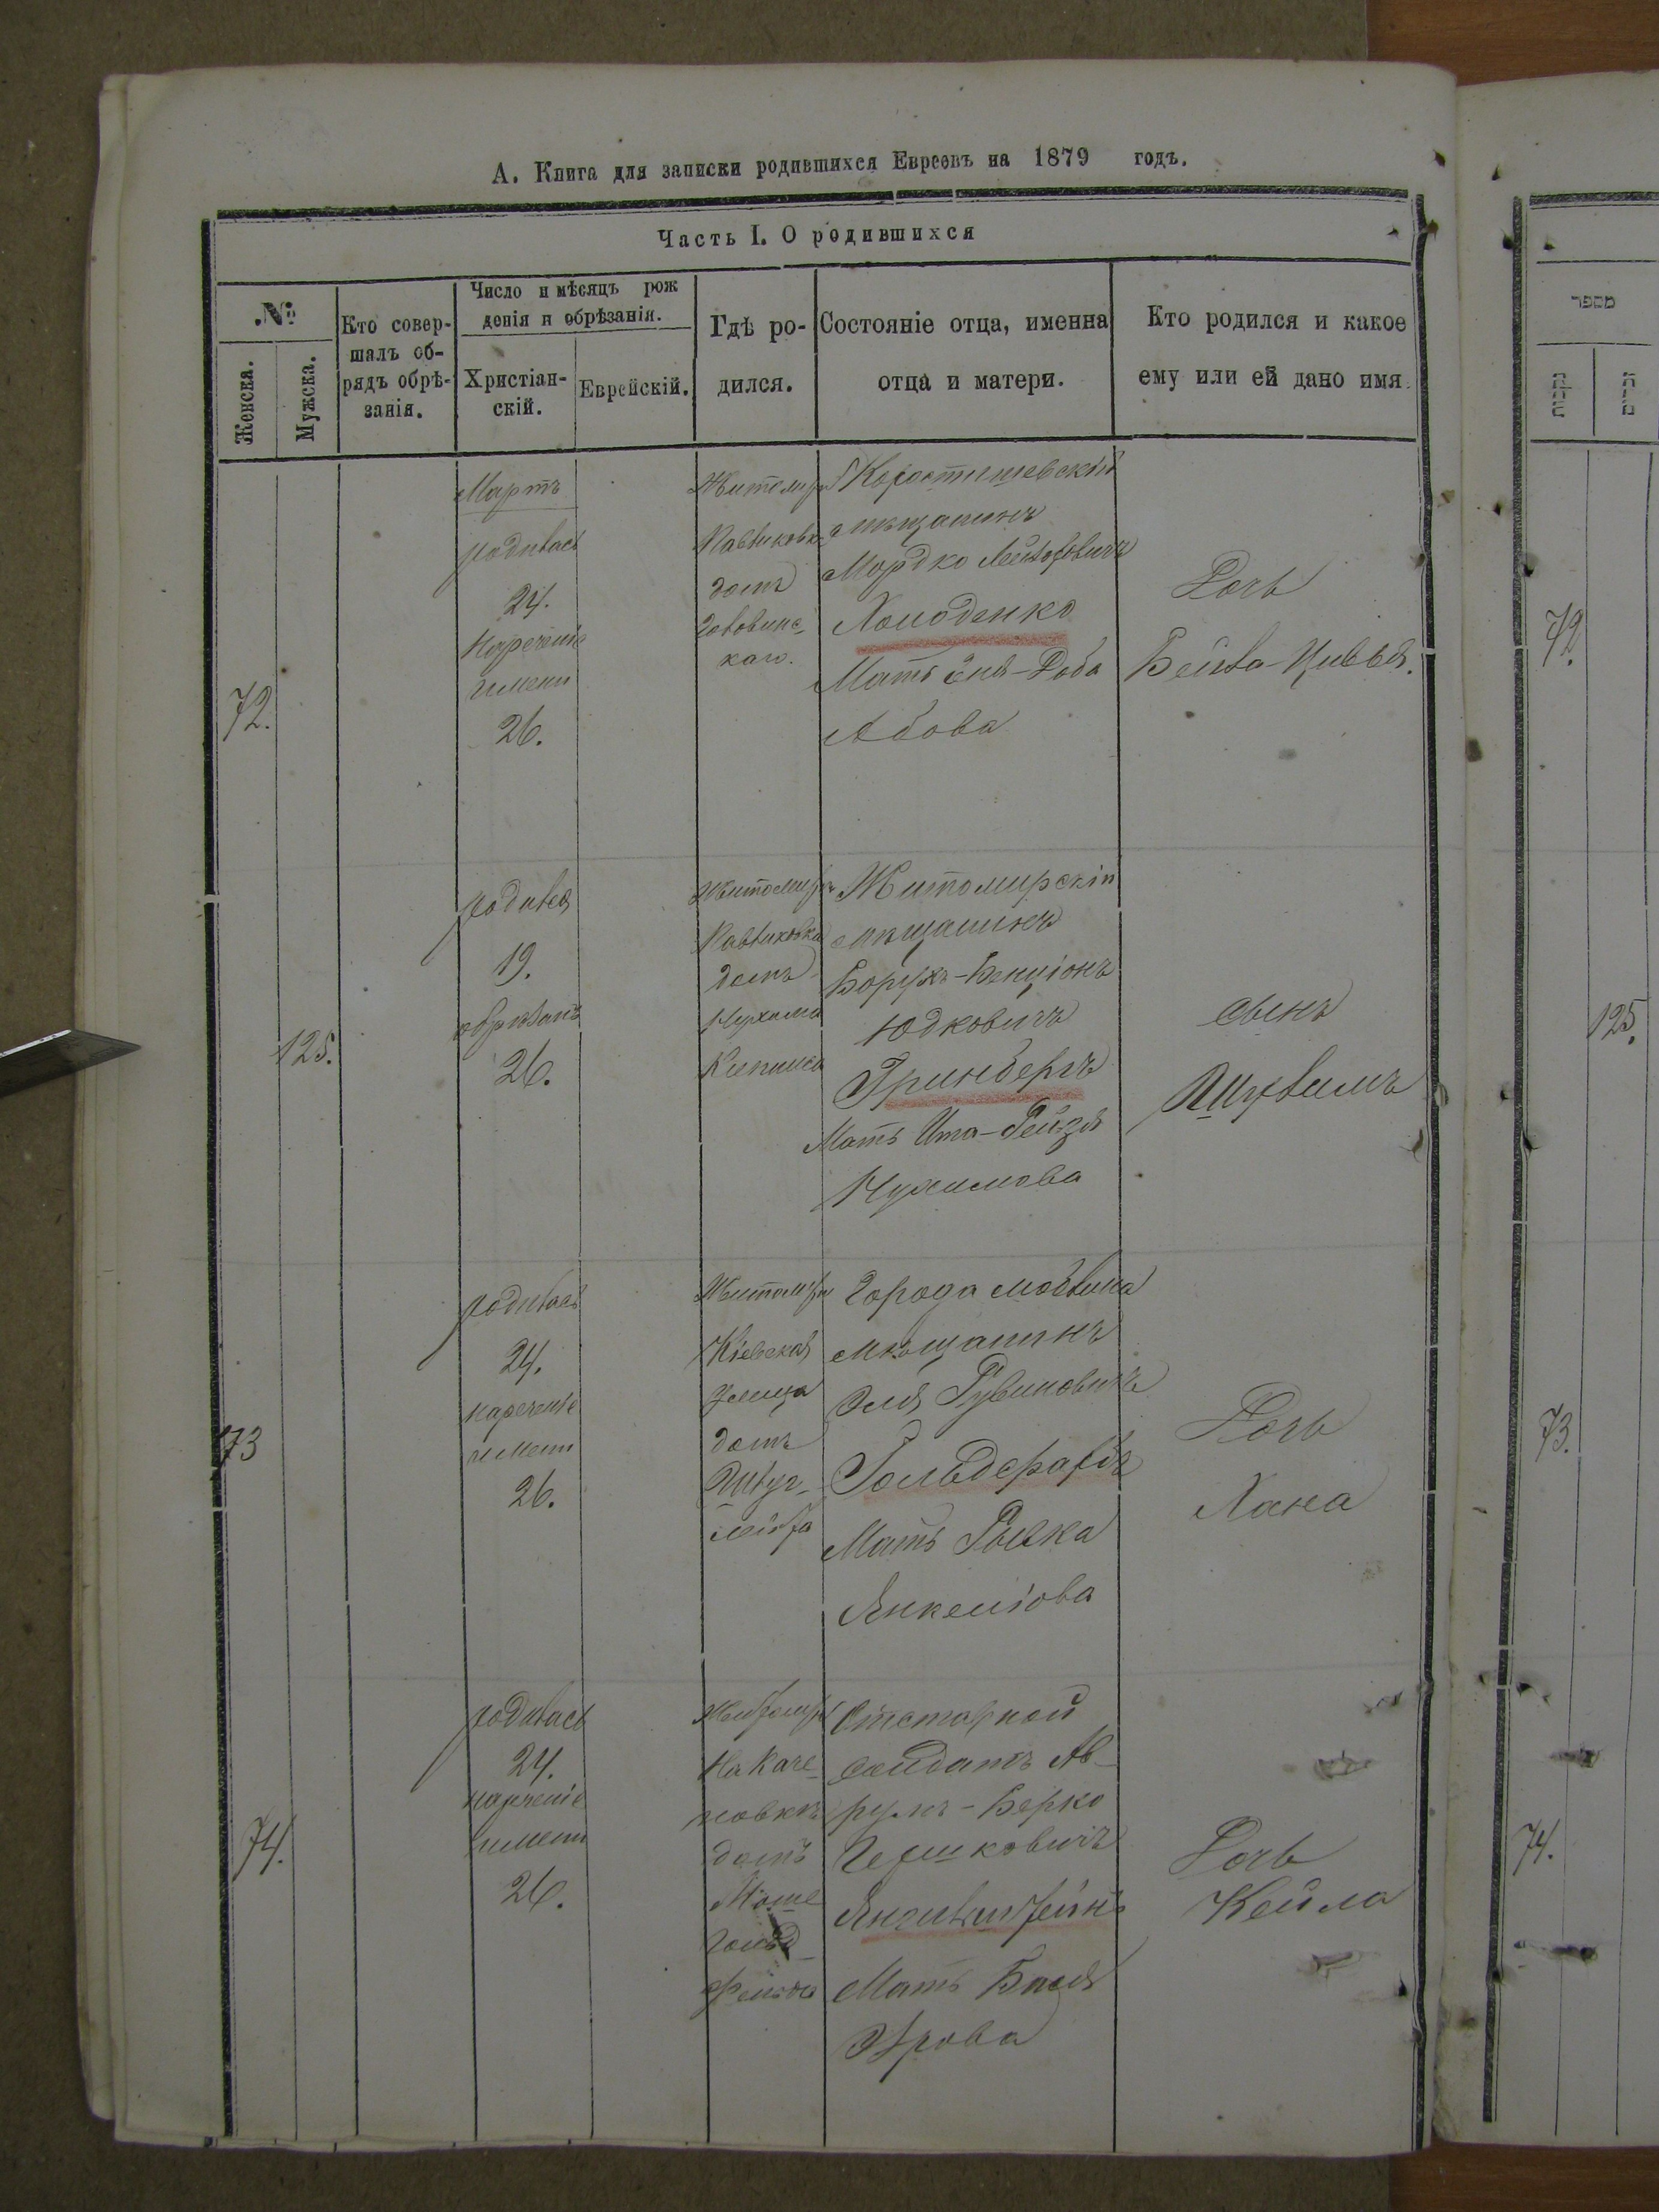 А. Книга для записки родившихся Евреевъ на 1879 годъ.
Часть I. О родившихся
№
Женска.
Мужска.
Кто совер-
шалъ об-
рядъ обрѣ-
занія.
Число и мѣсяцъ рож
денія и обрѣзанія.
Христіан-
скій.
Еврейскій.
Гдѣ ро-
дился.
Состояніе отца, именна
отца и матери.
Кто родился и какое
ему или ей дано имя
72.
Мартъ
родилась
24.
Нареченіе
имени
26.
Житомиръ
домъ
каго.
Коростишевскій
мѣщанинъ
Мордко Лейзоровичъ
Холоденко
Мать Эня-Доба
Абова
Дочь
Бейла-Цивья.
125.
родился
19.
обрѣзанъ
26.
Житомиръ
домъ
Нухима
Житомирскій
мѣщанинъ
Борухъ-Бенціонъ
Юдковичъ
Гринбергъ
Мать Ита-Рейзя
Нухимова
Сынъ
73
родилась
24.
нареченіе
имени
26.
Житомиръ
Кіевская
улица
домъ
Города
мѣщанинъ
Эля Рувиновичъ
Гольдфарбъ
Мать Рывка
Янкеліова
Дочь
Хана
74.
родилась
24.
нареченіе
имени
26.
Житомиръ
На Каче-
новкѣ
домъ
Мошe
Отставной
Солдатъ Ав-
румъ-Берко
Гершковичъ
Мать Бася
Срова
Дочь
Кейла
מספר
נקבות
זכרים
72.
125.
73.
74.